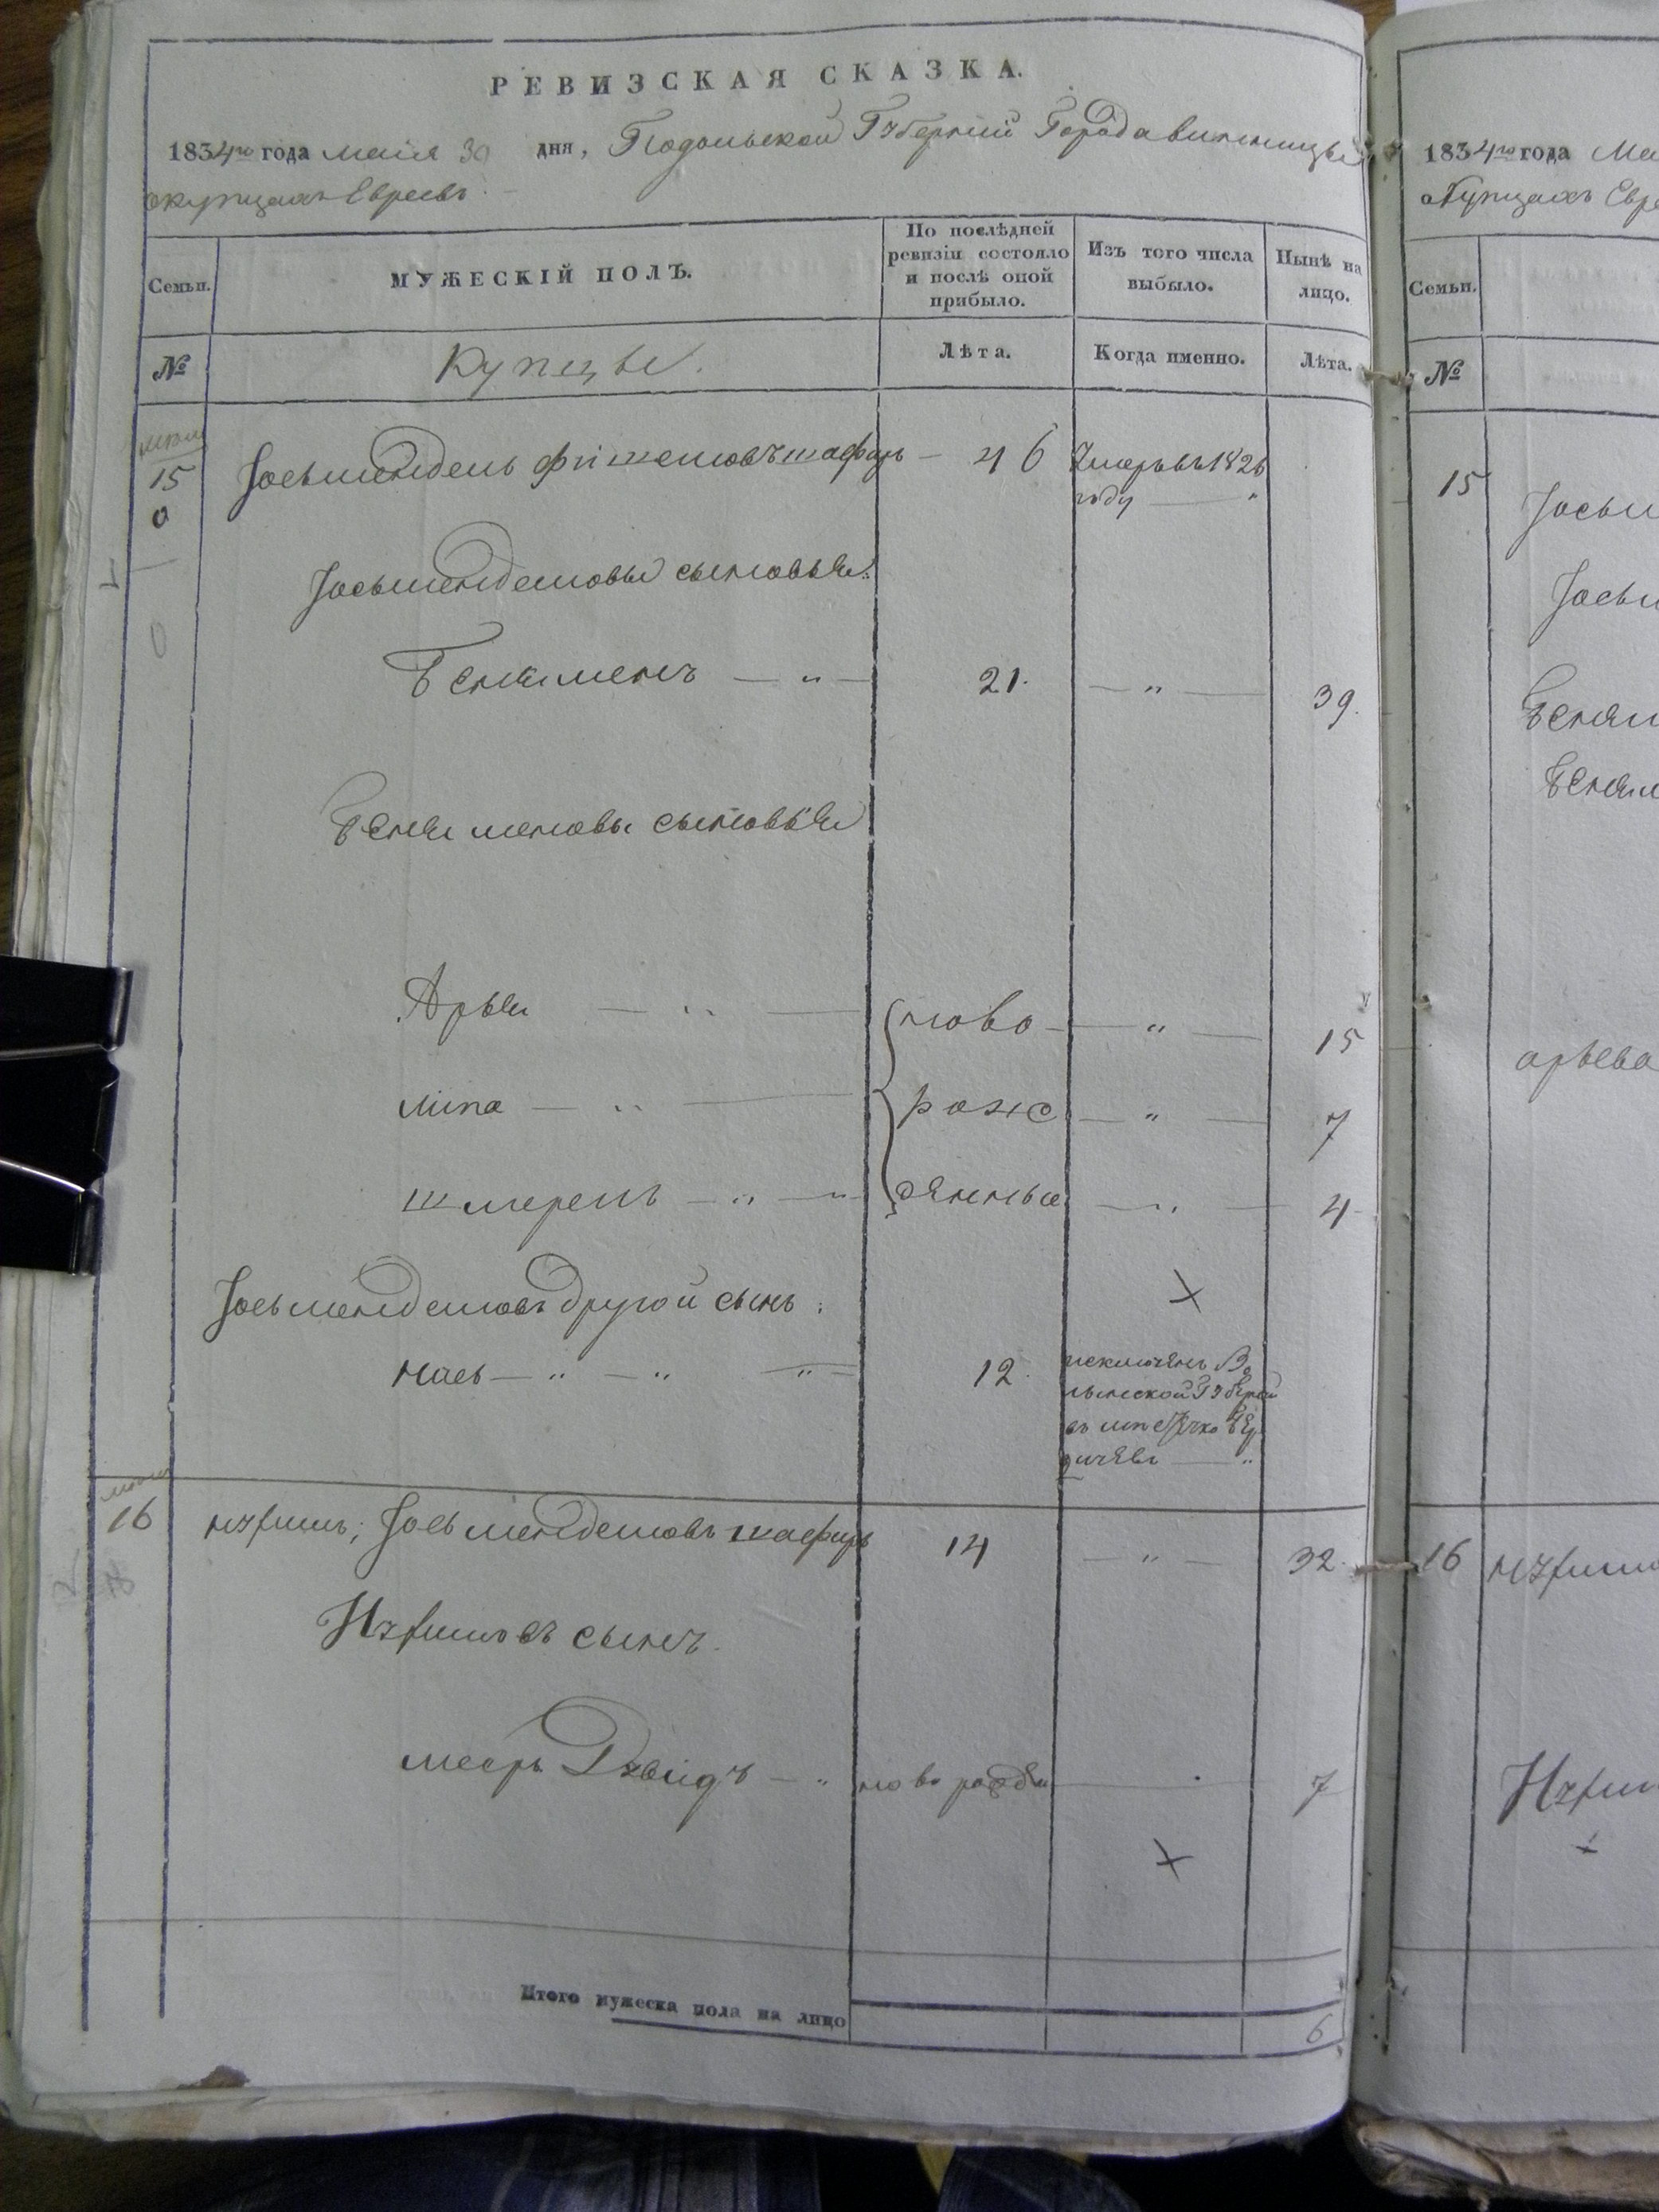 РЕВИЗСКАЯ СКАЗКА.
1834го года маія 30 дня, Подольской Губерніи Города винницы
окупцахъ Евреевъ
Семьи. МУЖЕСКІЙ ПОЛЪ. По послѣдней ревизіи состояло и послѣ оной прибыло. Изъ того числа выбыло. Нынѣ на лицо.
№ Купцы. Лѣта. Когда именно. Лѣта.
15 Іосьмендель Фишелювъ шафиръ — 46 Умеръ въ 1826
0 году — "
Іосьменделювы сыновья:
0
Беняменъ — " — 21. — " — 39.
Беняменовы сыновья
Арья — " — ново — " — 15
липа — " — рож — " — 7
шмерель — " — " дѣнные — " — 4
Іосьменделювъ другой сынъ:
×
Каев — " — " " — 12. исключенъ Во
лынской Губерніи
въ местечко Бер
дичевъ — "
16 Іось менделювъ шафиръ 14 — " — 32.
сынъ.
меерь Давидъ — " новорожде — 7
×
Итого мужеска пола на лицо 6
1834го года Ма
окупцахъ Евре
Семьи.
№
15 Іосьм
Іосьм
Беням
Беням
арьева
16
×